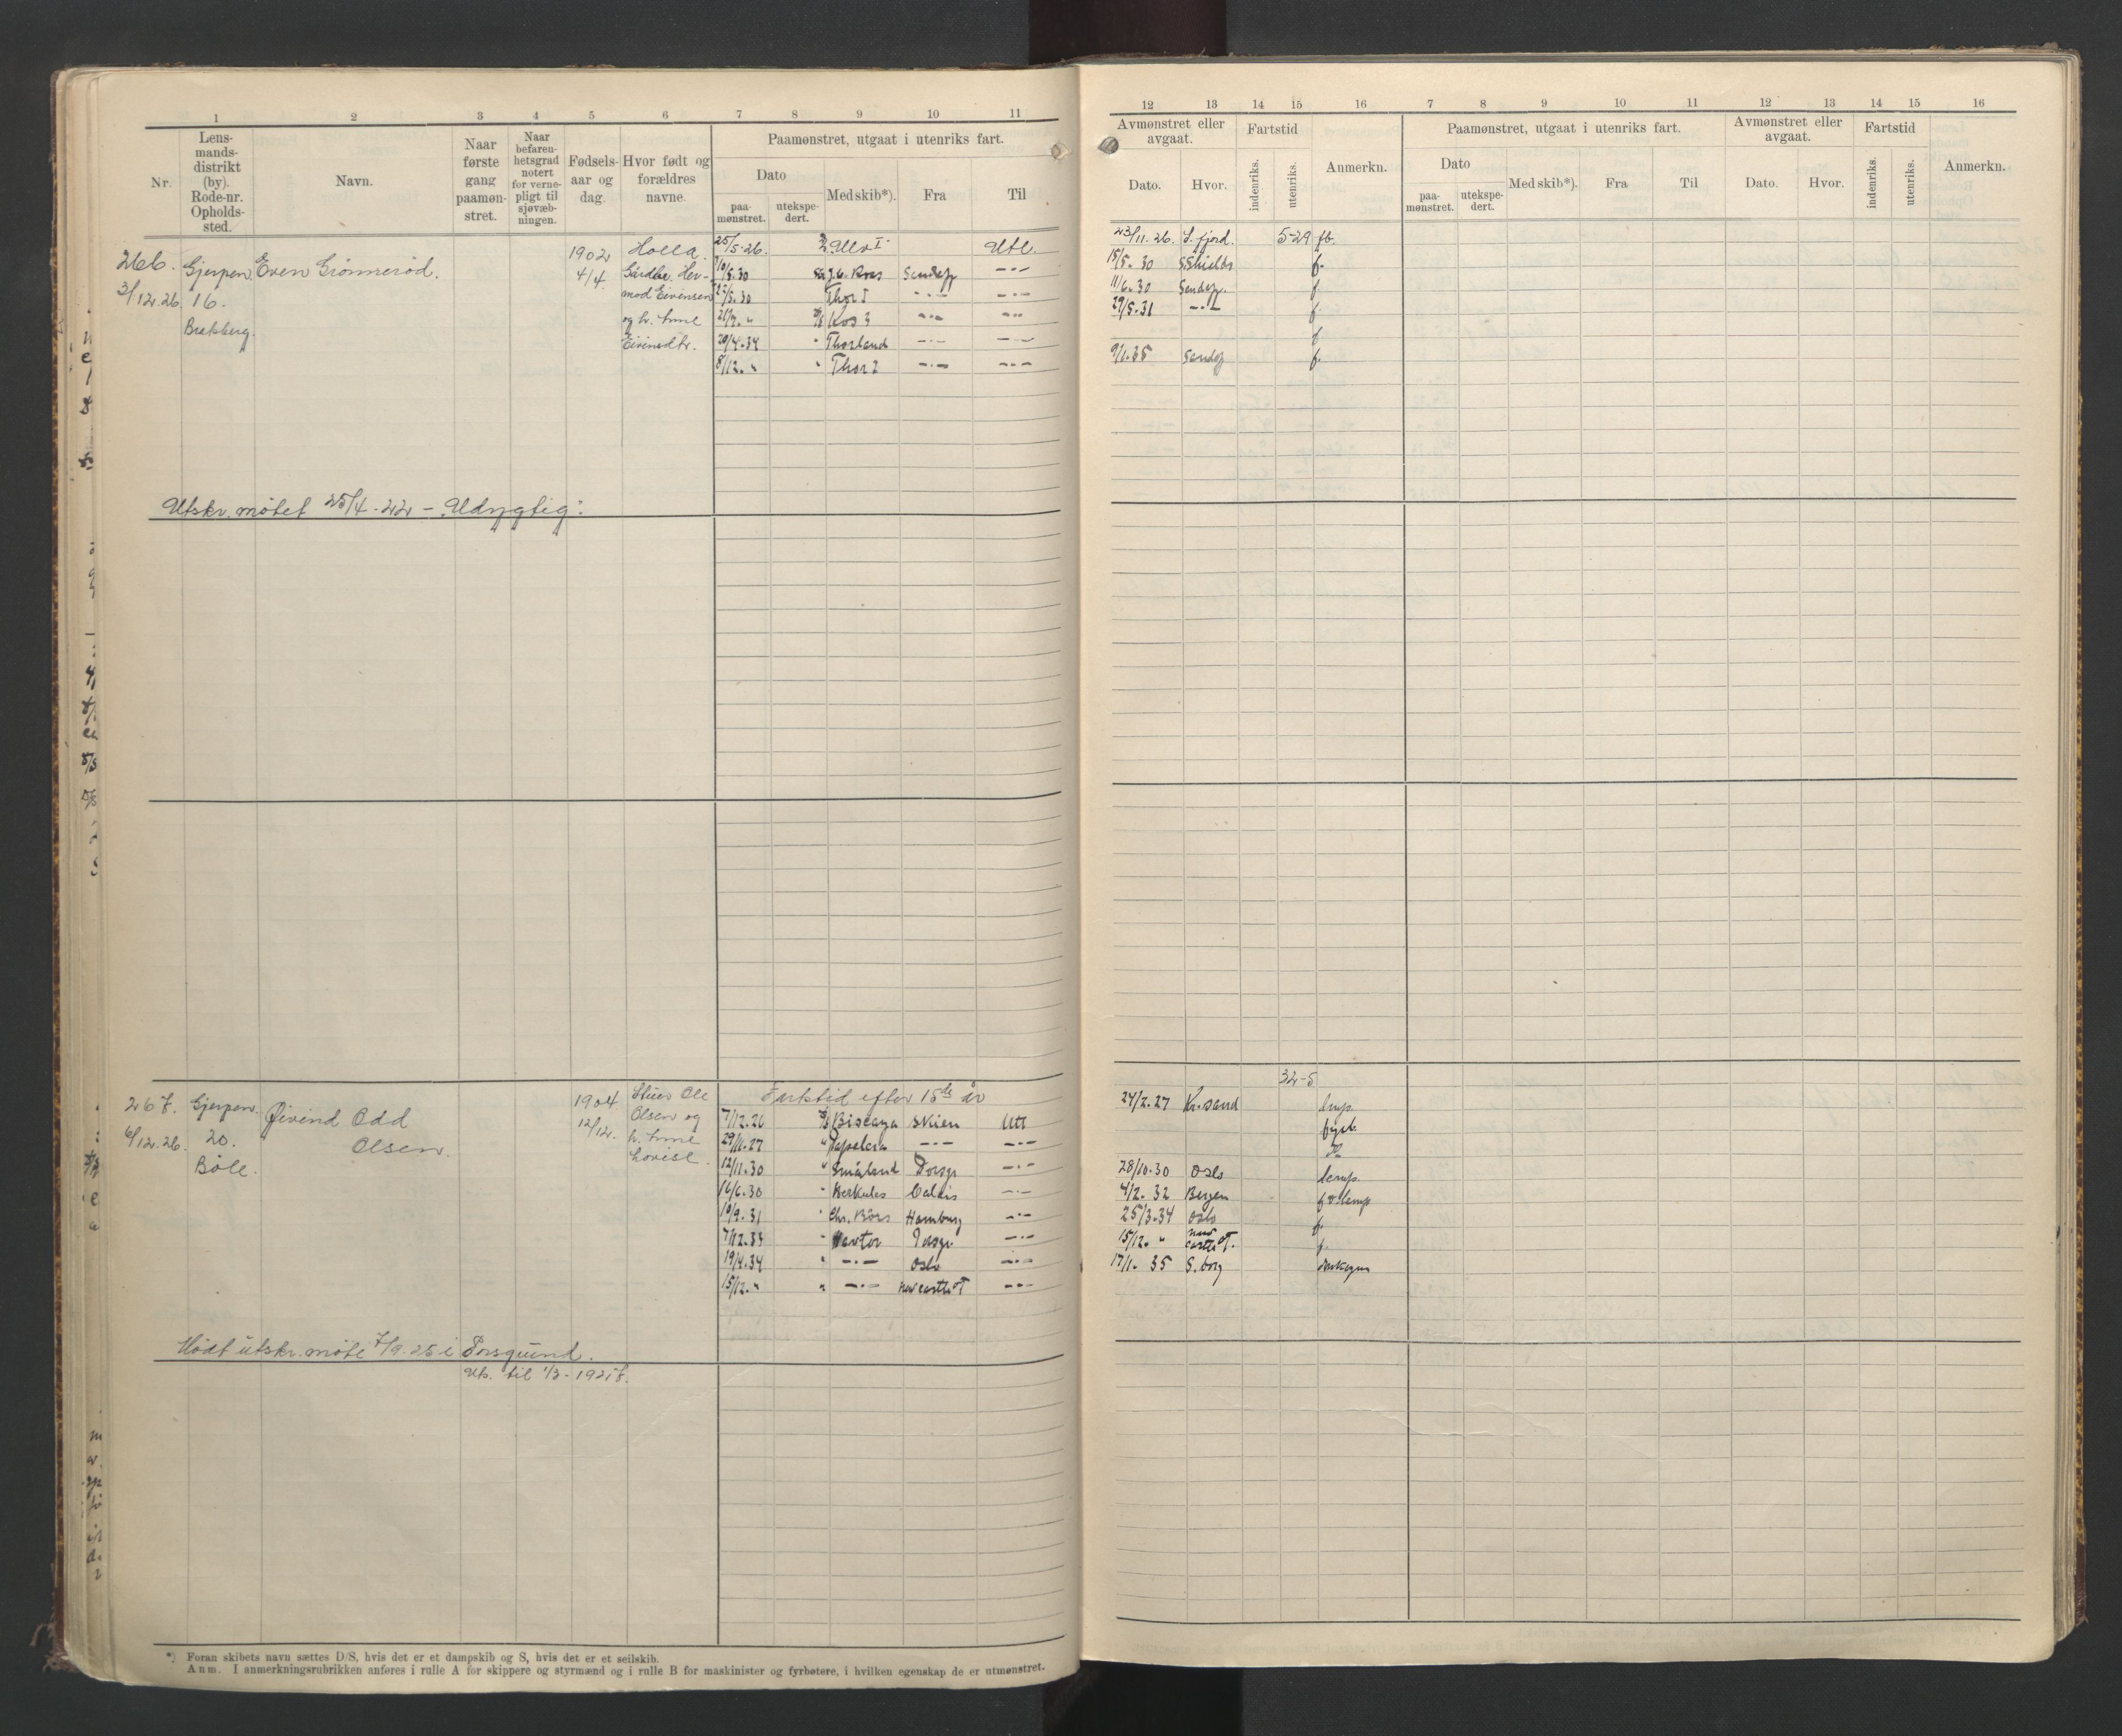 1 2 3 4 5 6 7 8 9 10 11
Nr.
Lens-
mands-
distrikt
(by).
Rode-nr.
Opholds-
sted.
Navn.
Naar
første
gang
paamøn-
stret.
Naar
befaren-
hetsgrad
notert
for verne-
pligt til
sjøvæb-
ningen.
Fødsels-
aar og
dag.
Hvor født og
forældres
navne.
Paamønstret, utgaat i utenriks fart.
Dato
paa-
mønstret.
utekspe-
dert.
Med skib*).
Fra
Til
266. Gjerpen Even Grønnerød. 1902 Holla. 25/5-26. Ulv I Utl.
3/12.26 16. 4/4. Gårdbr. Her- /5.30 Kos Sandefj —"—
mod Eivensen /5.30 Thor I —"— —"—
Brekberg. og h. Anne 21/7. " Kos 3 —"— —"—
20/4.34 " Thorland —"— —"—
8/12. " " Thor I —"— —"—
Utskr. møtet 25/4-22 - Udygtig.
267. Gjerpen Øivind Odd 1904 Ole Fartstid efter 15de år
6/12.26. 20. Olsen. 12/12. Olsen og 7/12.26 Biscaya Skien Utl
Bøle. h. Anne 29/11.27 " —"— —"—
Lovise. 12/11.30 " Småland Porsgr —"—
16/6.30 " Herkules Calais —"—
10/9.31 " Chr. Börs Hamburg —"—
7/12.33 " Porsgr —"—
19/4.34 " —"— Oslo —"—
15/12. " " —"— Newcastle T —"—
Mødt utskr. møte 7/9.25 i Porsgrund.
Uts. til 1/3-1927.
*) Foran skibets navn sættes D/S, hvis det er et dampskib og S, hvis det er et seilskib.
Anm. I anmerkningsrubrikken anføres i rulle A for skippere og styrmænd og i rulle B for maskinister og fyrbøtere, i hvilken egenskap de er utmønstret.
12 13 14 15 16 7 8 9 10 11 12 13 14 15 16
Avmønstret eller
avgaat.
Dato.
Hvor.
Fartstid
indenriks.
utenriks.
Anmerkn.
Paamønstret, utgaat i utenriks fart.
Dato
paa-
mønstret.
utekspe-
dert.
Med skib*).
Fra
Til
Avmønstret eller
avgaat.
Dato.
Hvor.
Fartstid
indenriks.
utenriks.
Anmerkn.
23/11.26. S. fjord. 5-29 fb.
15/5.30 S Shields f.
11/6.30 Sandefj. f
29/5.31 —"— f.
f
9/1.35 Sandefj f.
32-5
24/2.27 Kr.sand
28/10.30 Oslo
4/2.32 Bergen
25/3.34 Oslo f.
15/12. " New castle T. f.
17/1.35 S. borg